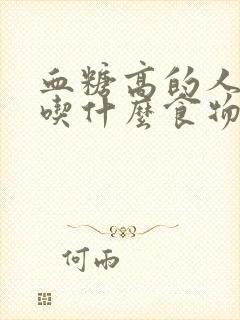 血糖高的人
喫什麼食物
何雨